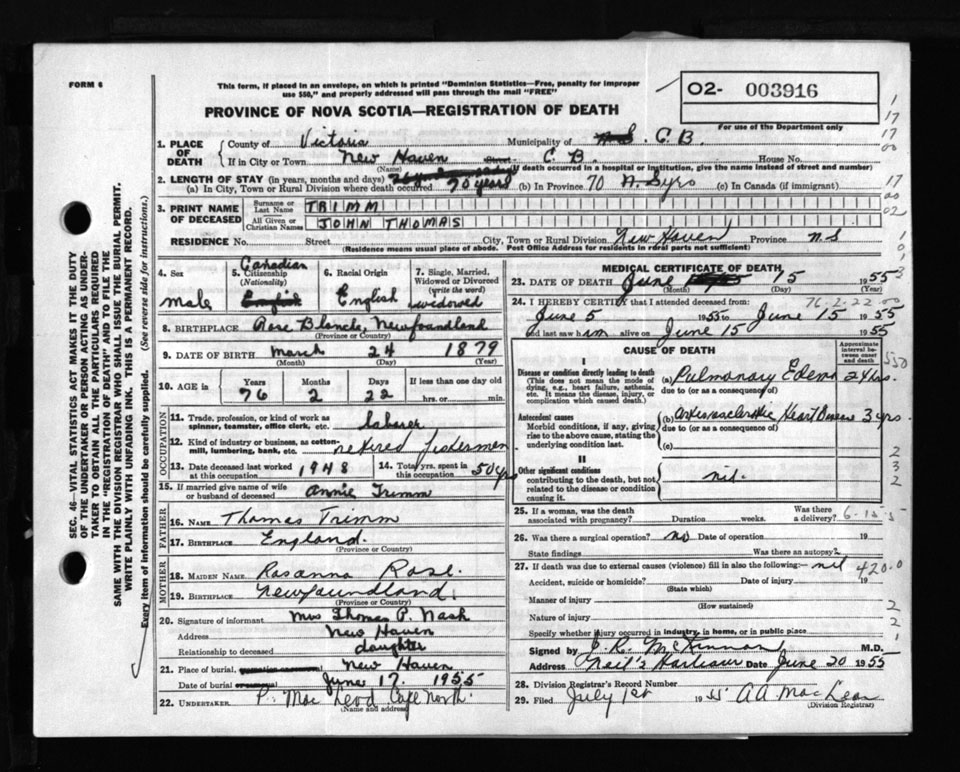 FORM 6
This form, if placed in an envelope, on which is printed "Dominion Statistics—Free, penalty for improper
use $50," and properly addressed will pass through the mail "FREE"
PROVINCE OF NOVA SCOTIA—REGISTRATION OF DEATH
O2- 003916
For use of the Department only
1. PLACE OF DEATH
County of Victoria Municipality of C.B.
If in City or Town New Haven Street C.B. House No.
(Name) (If death occurred in a hospital or institution, give the name instead of street and number)
2. LENGTH OF STAY (in years, months and days)
(a) In City, Town or Rural Division where death occurred 70 years (b) In Province 70 (c) In Canada (if immigrant)
3. PRINT NAME OF DECEASED
Surname or Last Name TRIMM
All Given or Christian Names JOHN THOMAS
RESIDENCE No. Street City, Town or Rural Division New Haven Province N.S
(Residence means usual place of abode. Post Office Address for residents in rural parts not sufficient)
4. Sex male
5. Citizenship (Nationality) Canadian
6. Racial Origin English
7. Single, Married, Widowed or Divorced (write the word) widowed
8. BIRTHPLACE Rose Blanche, Newfoundland
(Province or Country)
9. DATE OF BIRTH March 24 1879
(Month) (Day) (Year)
10. AGE in Years 76 Months 2 Days 22 If less than one day old hrs. or min.
OCCUPATION
11. Trade, profession, or kind of work as spinner, teamster, office clerk, etc. laborer
12. Kind of industry or business, as cotton-mill, lumbering, bank, etc. retired fishermen
13. Date deceased last worked at this occupation 1948 14. Total yrs. spent in this occupation 50 yrs
15. If married give name of wife or husband of deceased Annie Trimm
FATHER
16. NAME Thomas Trimm
17. BIRTHPLACE England.
(Province or Country)
MOTHER
18. MAIDEN NAME Rosanna Rose.
19. BIRTHPLACE Newfoundland.
(Province or Country)
20. Signature of informant Mrs Thomas P. Nash
Address New Haven
Relationship to deceased daughter
21. Place of burial, New Haven
Date of burial June 17. 1955
22. UNDERTAKER P. MacLeod Cape North
(Name and address)
MEDICAL CERTIFICATE OF DEATH
23. DATE OF DEATH June 15 1955
(Month) (Day)
24. I HEREBY CERTIFY that I attended deceased from: 76-2-22-00
June 5 1955 to June 15 1955
and last saw him alive on June 15 1955
CAUSE OF DEATH
Approximate interval between onset and death
I
Disease or condition directly leading to death
(This does not mean the mode of dying, e.g., heart failure, asthenia, etc. It means the disease, injury, or complication which caused death.)
(a) Pulmonary Edema 24 hrs.
due to (or as a consequence of)
Antecedent causes
Morbid conditions, if any, giving rise to the above cause, stating the underlying condition last.
(b) Arteriosclerotic Heart Disease 3 yrs.
due to (or as a consequence of)
(c)
II
Other significant conditions
contributing to the death, but not related to the disease or condition causing it.
nil.
25. If a woman, was the death associated with pregnancy? Duration weeks. Was there a delivery?
26. Was there a surgical operation? no Date of operation 19
State findings Was there an autopsy?
27. If death was due to external causes (violence) fill in also the following:— nil 420.0
Accident, suicide or homicide? Date of injury 19
(State which)
Manner of injury
(How sustained)
Nature of injury
Specify whether injury occurred in industry, in home, or in public place
Signed by McKinnon M.D.
Address Neil's Harbour Date June 20 1955
28. Division Registrar's Record Number
29. Filed July 1st 1955 A A MacLean
(Division Registrar)
SEC. 46—VITAL STATISTICS ACT MAKES IT THE DUTY
OF THE UNDERTAKER OR PERSON ACTING AS UNDER-
TAKER TO OBTAIN ALL THE PARTICULARS REQUIRED
IN THE "REGISTRATION OF DEATH" AND TO FILE THE
SAME WITH THE DIVISION REGISTRAR WHO SHALL ISSUE THE BURIAL PERMIT.
WRITE PLAINLY WITH UNFADING INK. THIS IS A PERMANENT RECORD.
Every item of information should be carefully supplied. (See reverse side for instructions.)